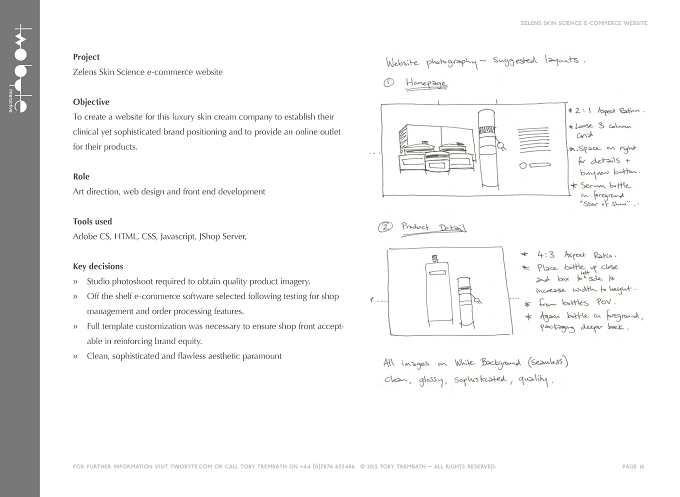 ZELENS SKIN SCIENCE E-COMMERCE WEBSITE
twobyte
interactive
Project
Zelens Skin Science e-commerce website
Objective
To create a website for this luxury skin cream company to establish their
clinical yet sophisticated brand positioning and to provide an online outlet
for their products.
Role
Art direction, web design and front end development
Tools used
Adobe CS, HTML, CSS, Javascript, JShop Server,
Key decisions
» Studio photoshoot required to obtain quality product imagery.
» Off the shelf e-commerce software selected following testing for shop
management and order processing features.
» Full template customization was necessary to ensure shop front accept-
able in reinforcing brand equity.
» Clean, sophisticated and flawless aesthetic paramount
Website photography – Suggested layouts.
① Homepage
* 2:1 Aspect Ration.
* Loose 3 column
Grid
* Space on right
for details +
buynow button.
* Serum bottle
in foreground
"Star of Show".
② Product Detail
* 4:3 Aspect Ratio.
* Place bottle up close
and box to left side to
increase width to height.
* from bottles POV.
* Again bottle in foreground,
packaging deeper back.
All images on White Background (Seamless)
Clean, glossy, sophisticated, quality.
FOR FURTHER INFORMATION VISIT TWOBYTE.COM OR CALL TOBY TREMBATH ON +44 (0)7876 655486. © 2012 TOBY TREMBATH – ALL RIGHTS RESERVED.
PAGE 16